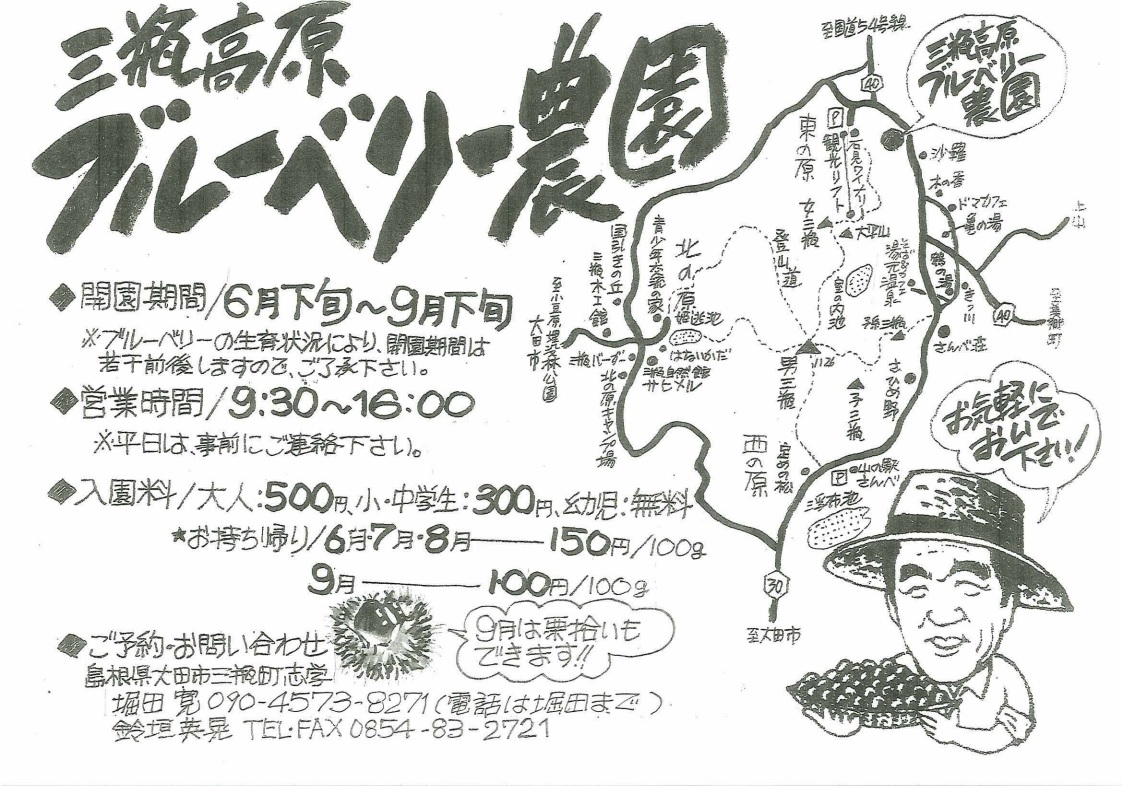 三瓶高原
ブルーベリー農園
◆開園期間/6月下旬~9月下旬
※ブルーベリーの生育状況により、開園期間は
若干前後しますので、ご了承下さい。
◆営業時間/9:30~16:00
※平日は、事前にご連絡下さい。
◆入園料/大人:500円、小・中学生:300円、幼児:無料
★お持ち帰り/6月・7月・8月――150円/100g
9月――100円/100g
9月は栗拾いも
できます!!
◆ご予約・お問い合わせ
島根県大田市三瓶町志学
堀田 寛 090-4573-8271(電話は堀田まで)
鈴垣英晃 TEL・FAX 0854-83-2721
至国道54号線
40
三瓶高原
ブルーベリー
農園
P
東の原
観光リフト
石見ワイナリー
沙羅
木の香
ドマカフェ
亀の湯
上山
女三瓶
大平山
国引きの丘
三瓶木工館
青少年交流の家
北の原
姫逃池
登山道
室の内池
そばカフェ
湯元温泉
鶴の湯
きっ川
40
至美郷町
至小豆原埋没林公園
大田市
三瓶バーガー
はないかだ
三瓶自然館
サヒメル
北の原キャンプ場
男三瓶
1126
孫三瓶
さんべ荘
さひめ野
子三瓶
西の原
定めの松
P
山の駅
さんべ
浮布池
30
至大田市
お気軽に
おいで
下さい!